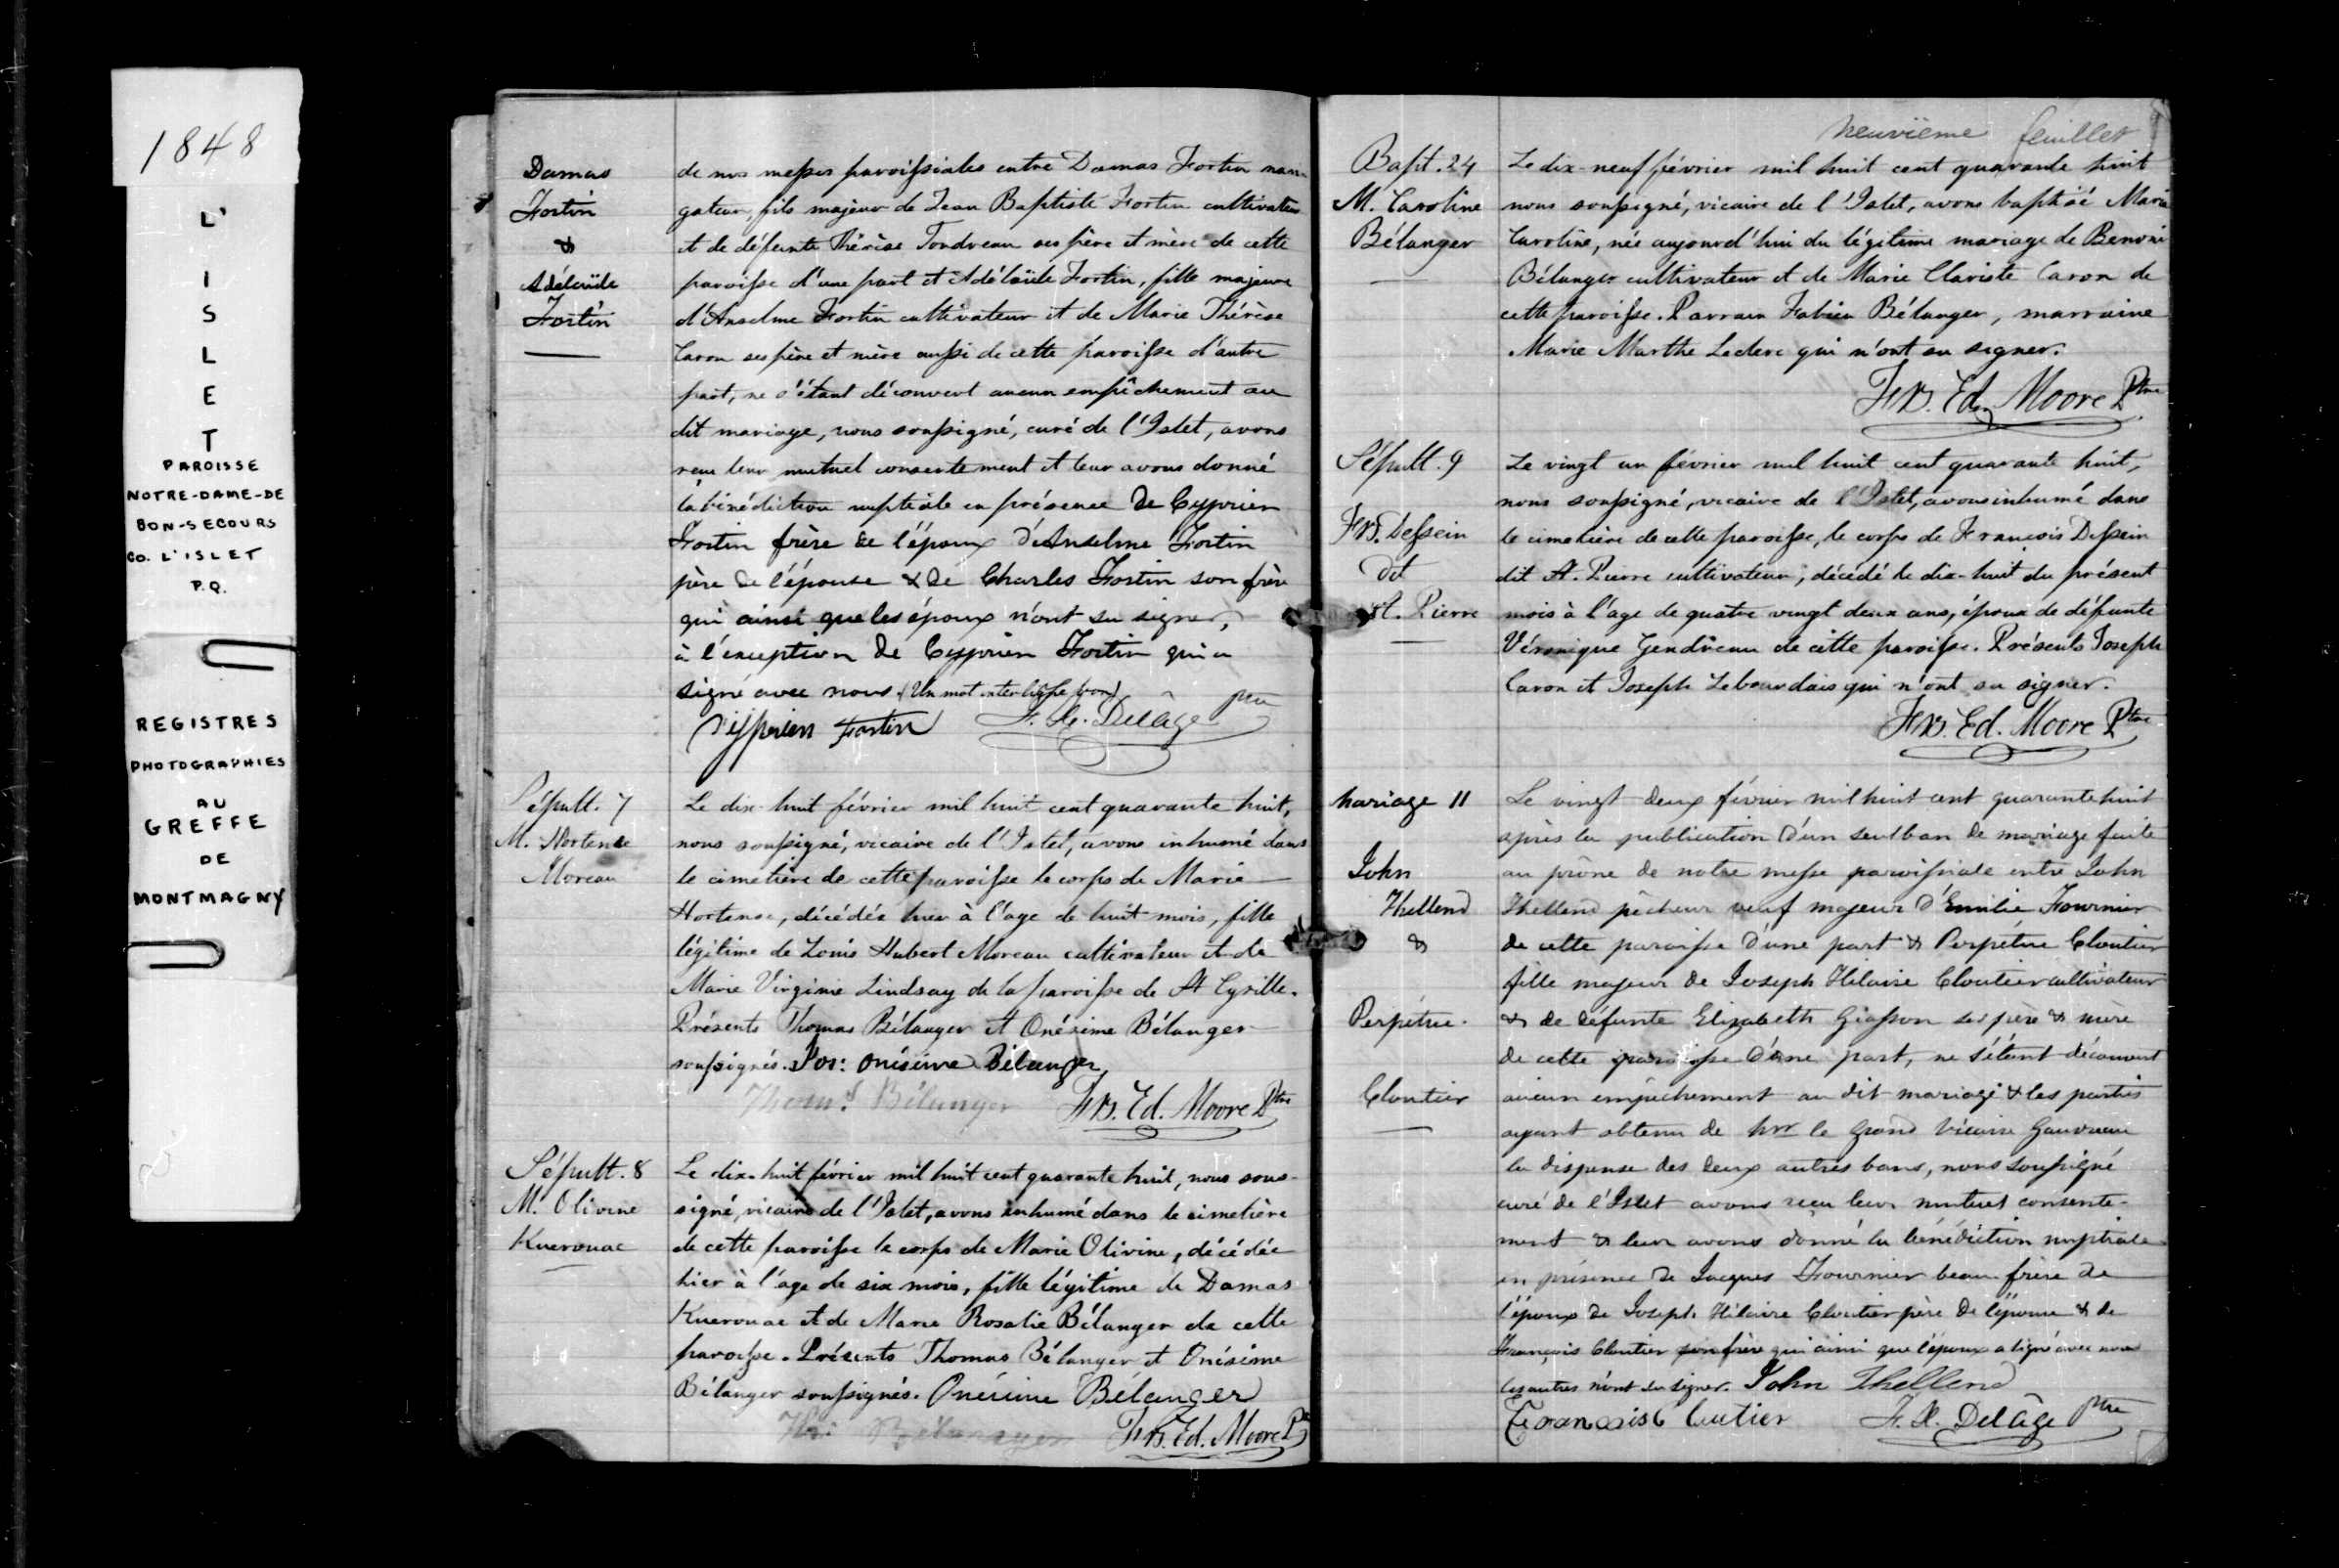 1848
L'
I
S
L
E
T
PAROISSE
NOTRE-DAME-DE
BON-SECOURS
CO. L'ISLET
P.Q.
REGISTRES
PHOTOGRAPHIES
AU
GREFFE
DE
MONTMAGNY
Damas
Fortin
&
Adélaïde
Fortin
de nos messes paroissiales entre Damas Fortin navi-
gateur, fils majeur de Jean Baptiste Fortin cultivateur
et de défunte Thérèse Tondreau ses père et mère de cette
paroisse d'une part et Adélaïde Fortin, fille majeure
d'Anselme Fortin cultivateur et de Marie Thérèse
Caron ses père et mère aussi de cette paroisse d'autre
part, ne s'étant découvert aucun empêchement au
dit mariage, nous soussigné, curé de l'Islet, avons
reçu leur mutuel consentement et leur avons donné
la bénédiction nuptiale en présence de Cyprien
Fortin frère de l'époux d'Anselme Fortin
père de l'épouse & de Charles Fortin son frère
qui ainsi que les époux n'ont su signer,
à l'exception de Cyprien Fortin qui a
signé avec nous (Un mot interligne bon)
Cyprien Fortin F. X. Delâge Ptre
Sépult. 7
M. Hortense
Moreau
Le dix-huit février mil huit cent quarante huit,
nous soussigné, vicaire de l'Islet, avons inhumé dans
le cimetière de cette paroisse le corps de Marie
Hortense, décédée hier à l'age de huit mois, fille
légitime de Louis Hubert Moreau cultivateur et de
Marie Virginie Lindsay de la paroisse de St Cyrille.
Présents Thomas Bélanger et Onésime Bélanger
soussignés. Jos: Onésime Bélanger
Thoms. Bélanger Frs. Ed. Moore Ptre
Sépult. 8
M. Olivine
Kuerouac
Le dix-huit février mil huit cent quarante huit, nous sous-
signé, vicaire de l'Islet, avons inhumé dans le cimetière
de cette paroisse le corps de Marie Olivine, décédée
hier à l'age de six mois, fille légitime de Damas
Kuerouac et de Marie Rosalie Bélanger de cette
paroisse. Présents Thomas Bélanger et Onésime
Bélanger soussignés. Onésime Bélanger
Bélanger Frs. Ed. Moore Ptre
neuvième feuillet
Bapt. 24
M. Caroline
Bélanger
Le dix-neuf février mil huit cent quarante huit
nous soussigné, vicaire de l'Islet, avons baptisé Marie
Caroline, née aujourd'hui du légitime mariage de Benoni
Bélanger cultivateur et de Marie Clariste Caron de
cette paroisse. Parrain Fabien Bélanger, marraine
Marie Marthe Leclerc qui n'ont su signer.
Frs. Ed. Moore Ptre
Sépult. 9
Frs. Dessein
dit
St. Pierre
Le vingt un février mil huit cent quarante huit,
nous soussigné, vicaire de l'Islet, avons inhumé dans
le cimetière de cette paroisse, le corps de François Dessein
dit St. Pierre cultivateur, décédé le dix-huit du présent
mois à l'age de quatre vingt deux ans, époux de défunte
Véronique Gendreau de cette paroisse. Présents Joseph
Caron et Joseph Lebourdais qui n'ont su signer.
Frs. Ed. Moore Ptre
Mariage 11
John
Thellend
&
Perpétue
Cloutier
Le vingt deux février mil huit cent quarante huit
après la publication d'un seul ban de mariage faite
au prône de notre messe paroissiale entre John
Thellend pêcheur veuf majeur d'Emilie Fournier
de cette paroisse d'une part & Perpétue Cloutier
fille majeur de Joseph Hilaire Cloutier cultivateur
& de défunte Elizabeth Giasson ses père & mère
de cette paroisse d'une part, ne s'étant découvert
aucun empêchement au dit mariage & les parties
ayant obtenu de Mr le grand Vicaire Gauvreau
la dispense des deux autres bans, nous soussigné
curé de l'Islet avons reçu leur mutuel consente-
ment & leur avons donné la bénédiction nuptiale
en présence de Jacques Fournier beau-frère de
l'époux de Joseph Hilaire Cloutier père de l'épouse & de
François Cloutier son frère qui ainsi que l'époux a signé avec nous
les autres n'ont su signer. John Thellend
François Clutier F. X. Delâge Ptre